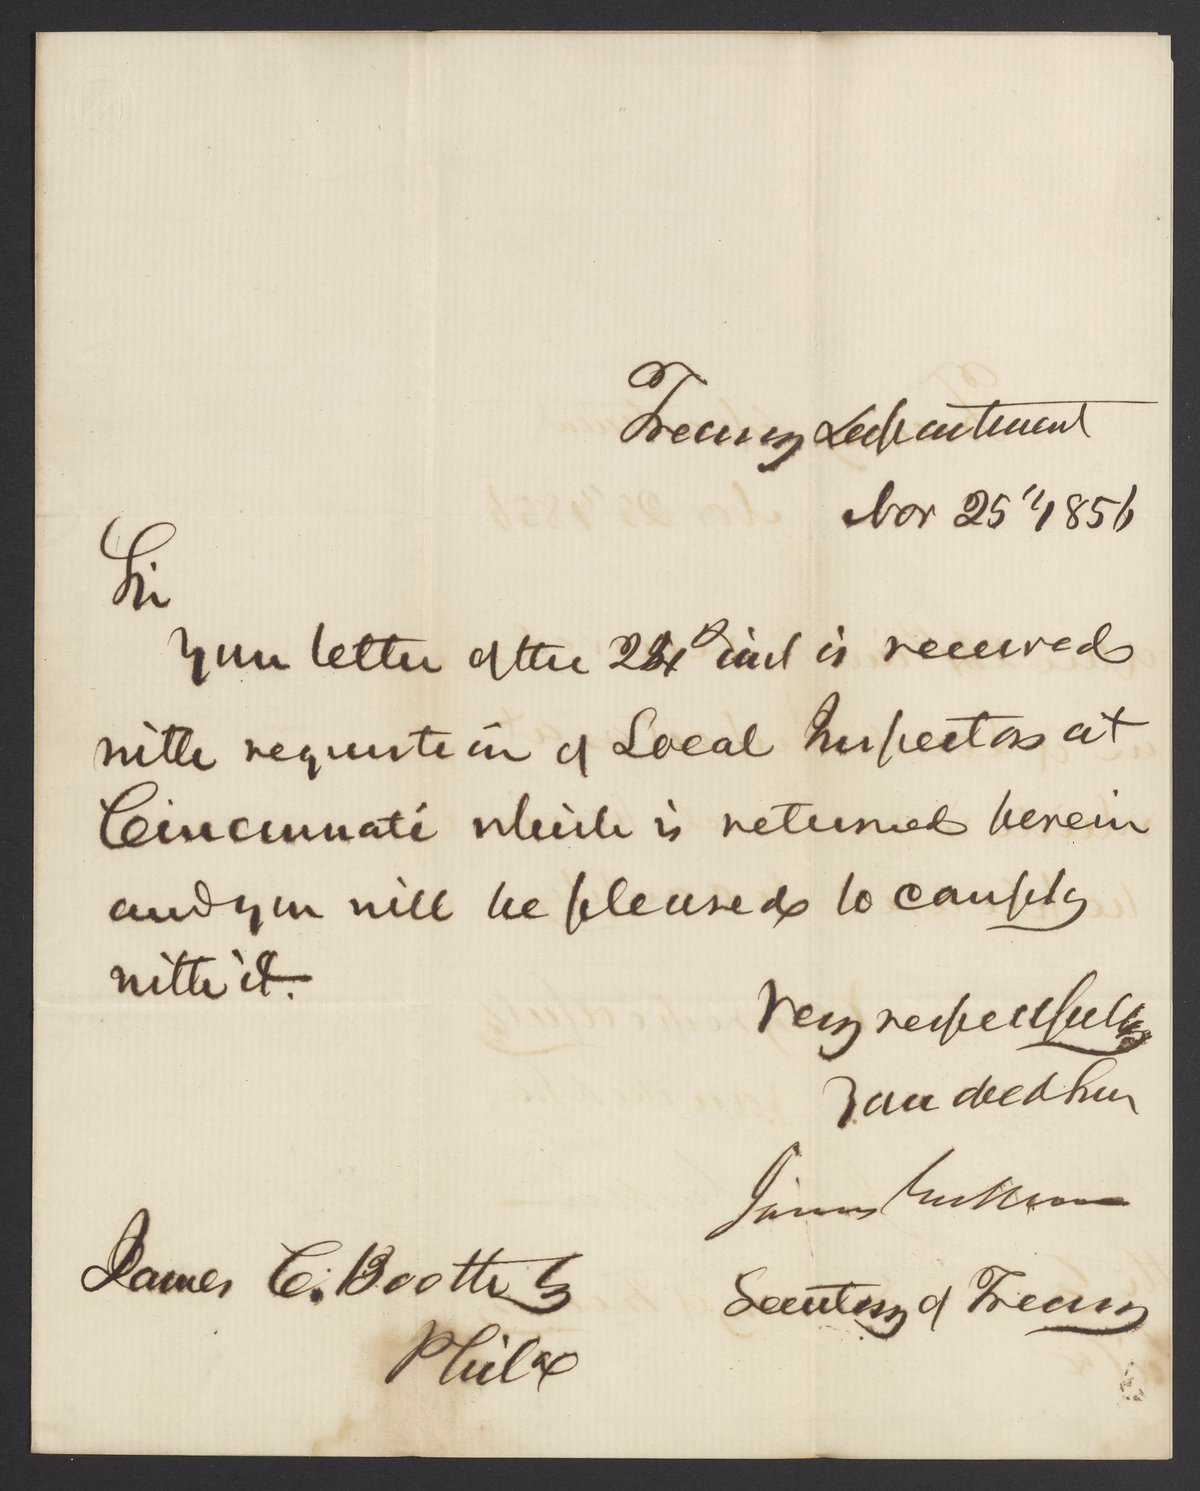 Treasury Department
Nov 25" 1856
Sir
Your letter of the 24th inst is received
with requisition of Local Inspectors at
Cincinnati which is returned herein
and you will be pleased to comply
with it.
Very respectfully
Your obed Serv
James Guthrie
James C. Booth Esq
Secretary of Treasury
Phila